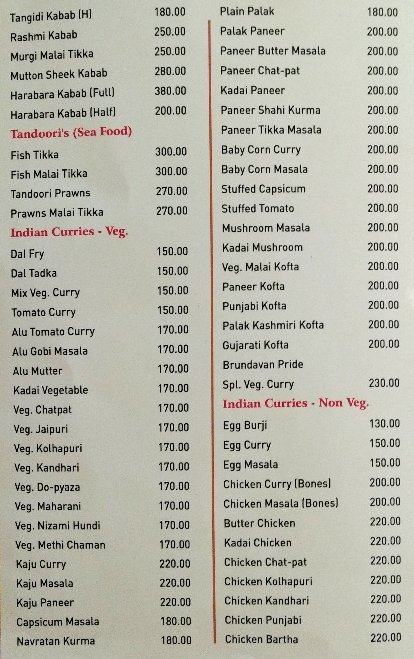 Tangidi Kabab (H) 180.00
Rashmi Kabab 250.00
Murgi Malai Tikka 250.00
Mutton Sheek Kabab 280.00
Harabara Kabab (Full) 380.00
Harabara Kabab (Half) 200.00
Tandoori's (Sea Food)
Fish Tikka 300.00
Fish Malai Tikka 300.00
Tandoori Prawns 270.00
Prawns Malai Tikka 270.00
Indian Curries - Veg.
Dal Fry 150.00
Dal Tadka 150.00
Mix Veg. Curry 150.00
Tomato Curry 150.00
Alu Tomato Curry 170.00
Alu Gobi Masala 170.00
Alu Mutter 170.00
Kadai Vegetable 170.00
Veg. Chatpat 170.00
Veg. Jaipuri 170.00
Veg. Kolhapuri 170.00
Veg. Kandhari 170.00
Veg. Do-pyaza 170.00
Veg. Maharani 170.00
Veg. Nizami Hundi 170.00
Veg. Methi Chaman 170.00
Kaju Curry 220.00
Kaju Masala 220.00
Kaju Paneer 220.00
Capsicum Masala 180.00
Navratan Kurma 180.00
Plain Palak 180.00
Palak Paneer 200.00
Paneer Butter Masala 200.00
Paneer Chat-pat 200.00
Kadai Paneer 200.00
Paneer Shahi Kurma 200.00
Paneer Tikka Masala 200.00
Baby Corn Curry 200.00
Baby Corn Masala 200.00
Stuffed Capsicum 200.00
Stuffed Tomato 200.00
Mushroom Masala 200.00
Kadai Mushroom 200.00
Veg. Malai Kofta 200.00
Paneer Kofta 200.00
Punjabi Kofta 200.00
Palak Kashmiri Kofta 200.00
Gujarati Kofta 200.00
Brundavan Pride
Spl. Veg. Curry 230.00
Indian Curries - Non Veg.
Egg Burji 130.00
Egg Curry 150.00
Egg Masala 150.00
Chicken Curry (Bones) 200.00
Chicken Masala (Bones) 200.00
Butter Chicken 220.00
Kadai Chicken 220.00
Chicken Chat-pat 220.00
Chicken Kolhapuri 220.00
Chicken Kandhari 220.00
Chicken Punjabi 220.00
Chicken Bartha 220.00